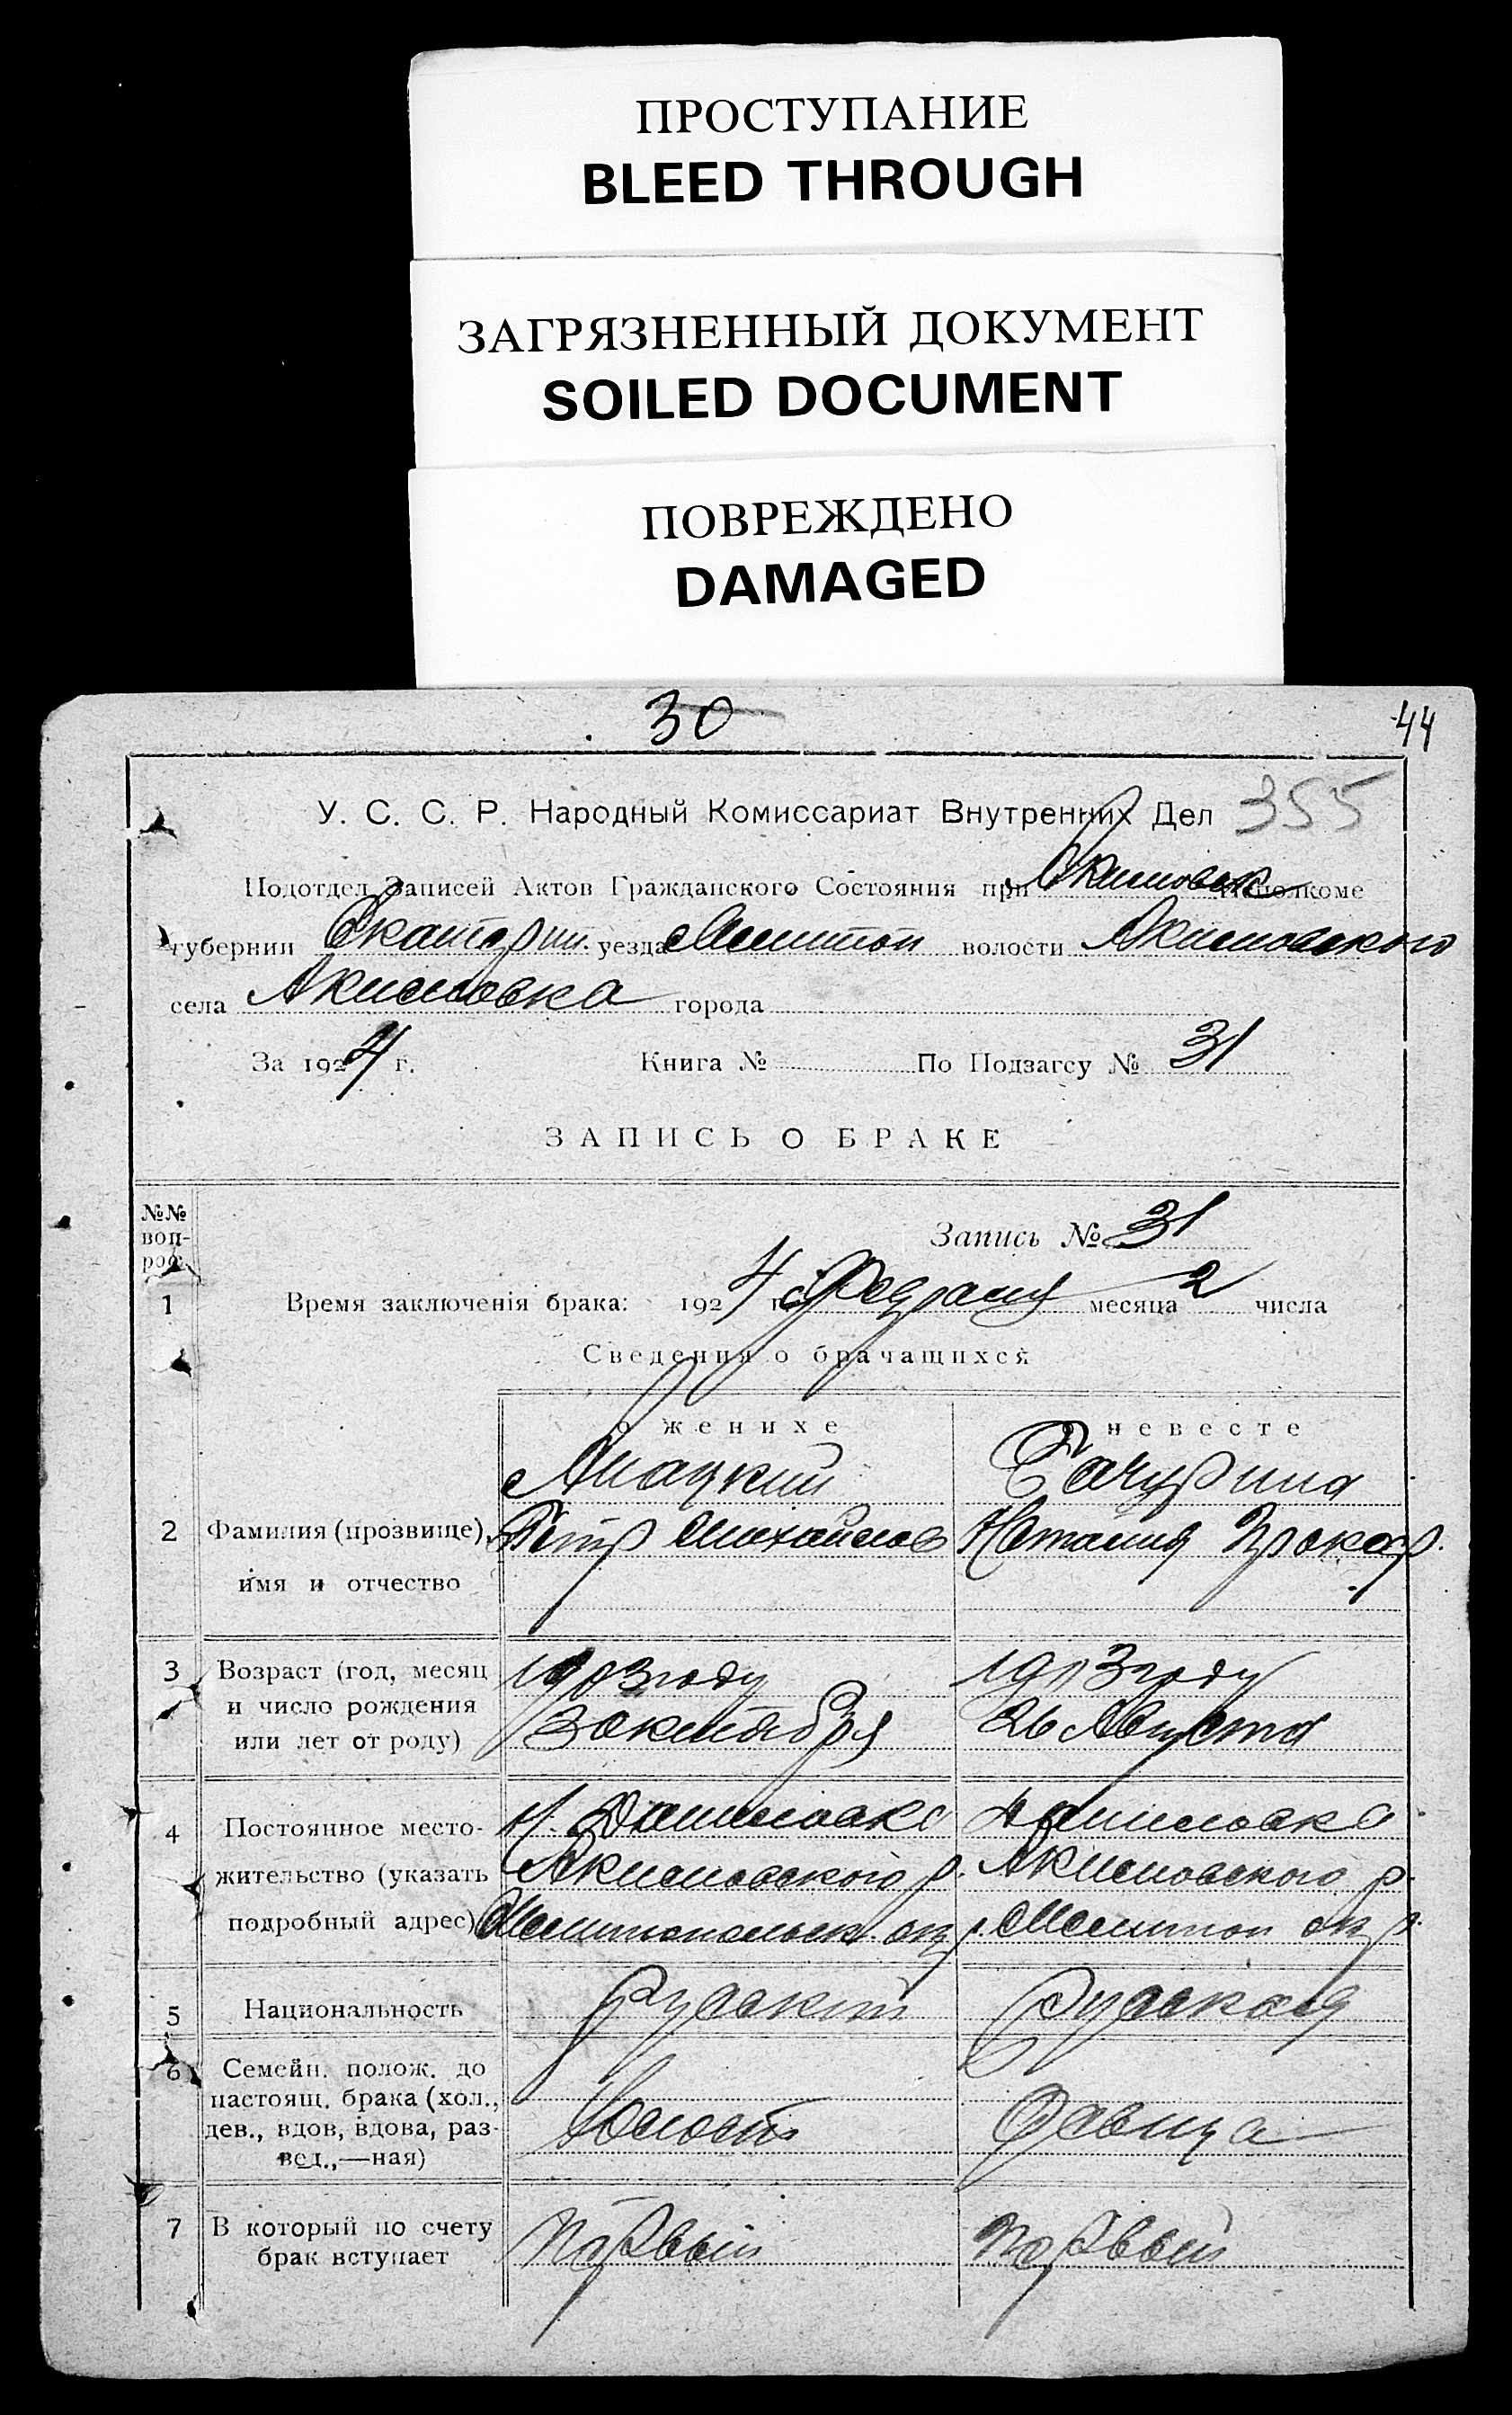 ПРОСТУПАНИЕ
BLEED THROUGH
ЗАГРЯЗНЕННЫЙ ДОКУМЕНТ
SOILED DOCUMENT
ПОВРЕЖДЕНО
DAMAGED
30
44
У. С. С. Р. Народный Комиссариат Внутренних Дел 355
Подотдел Записей Актов Гражданского Состояния при Акимовск Исполкоме
губернии Екатерин. уезда Мелитоп волости Акимовского
села Акимовка города
За 1924 г. Книга № По Подзагсу № 31
ЗАПИСЬ О БРАКЕ
№№ воп- рос. Запись № 31
1 Время заключенія брака: 1924 г. Февраля месяца 2 числа
Сведения о брачащихся
о женихе о невесте
Бачурина
2 Фамилия (прозвище), Петр Михайлов Наталия Прокоф.
имя и отчество
3 Возраст (год, месяц 1903 году 1903 году
и число рождения 3 октября 26 Августа
или лет от роду)
4 Постоянное место- Н. Даниловка Даниловка
жительство (указать Акимовского р. Акимовского р.
подробный адрес) Мелитопольск. окр. Мелитоп окр.
5 Национальность Руский Руская
6 Семейн. полож. до
настоящ. брака (хол., Холост Девица
дев., вдов, вдова, раз-
вед.,—ная)
7 В который по счету Первый Первый
брак вступает